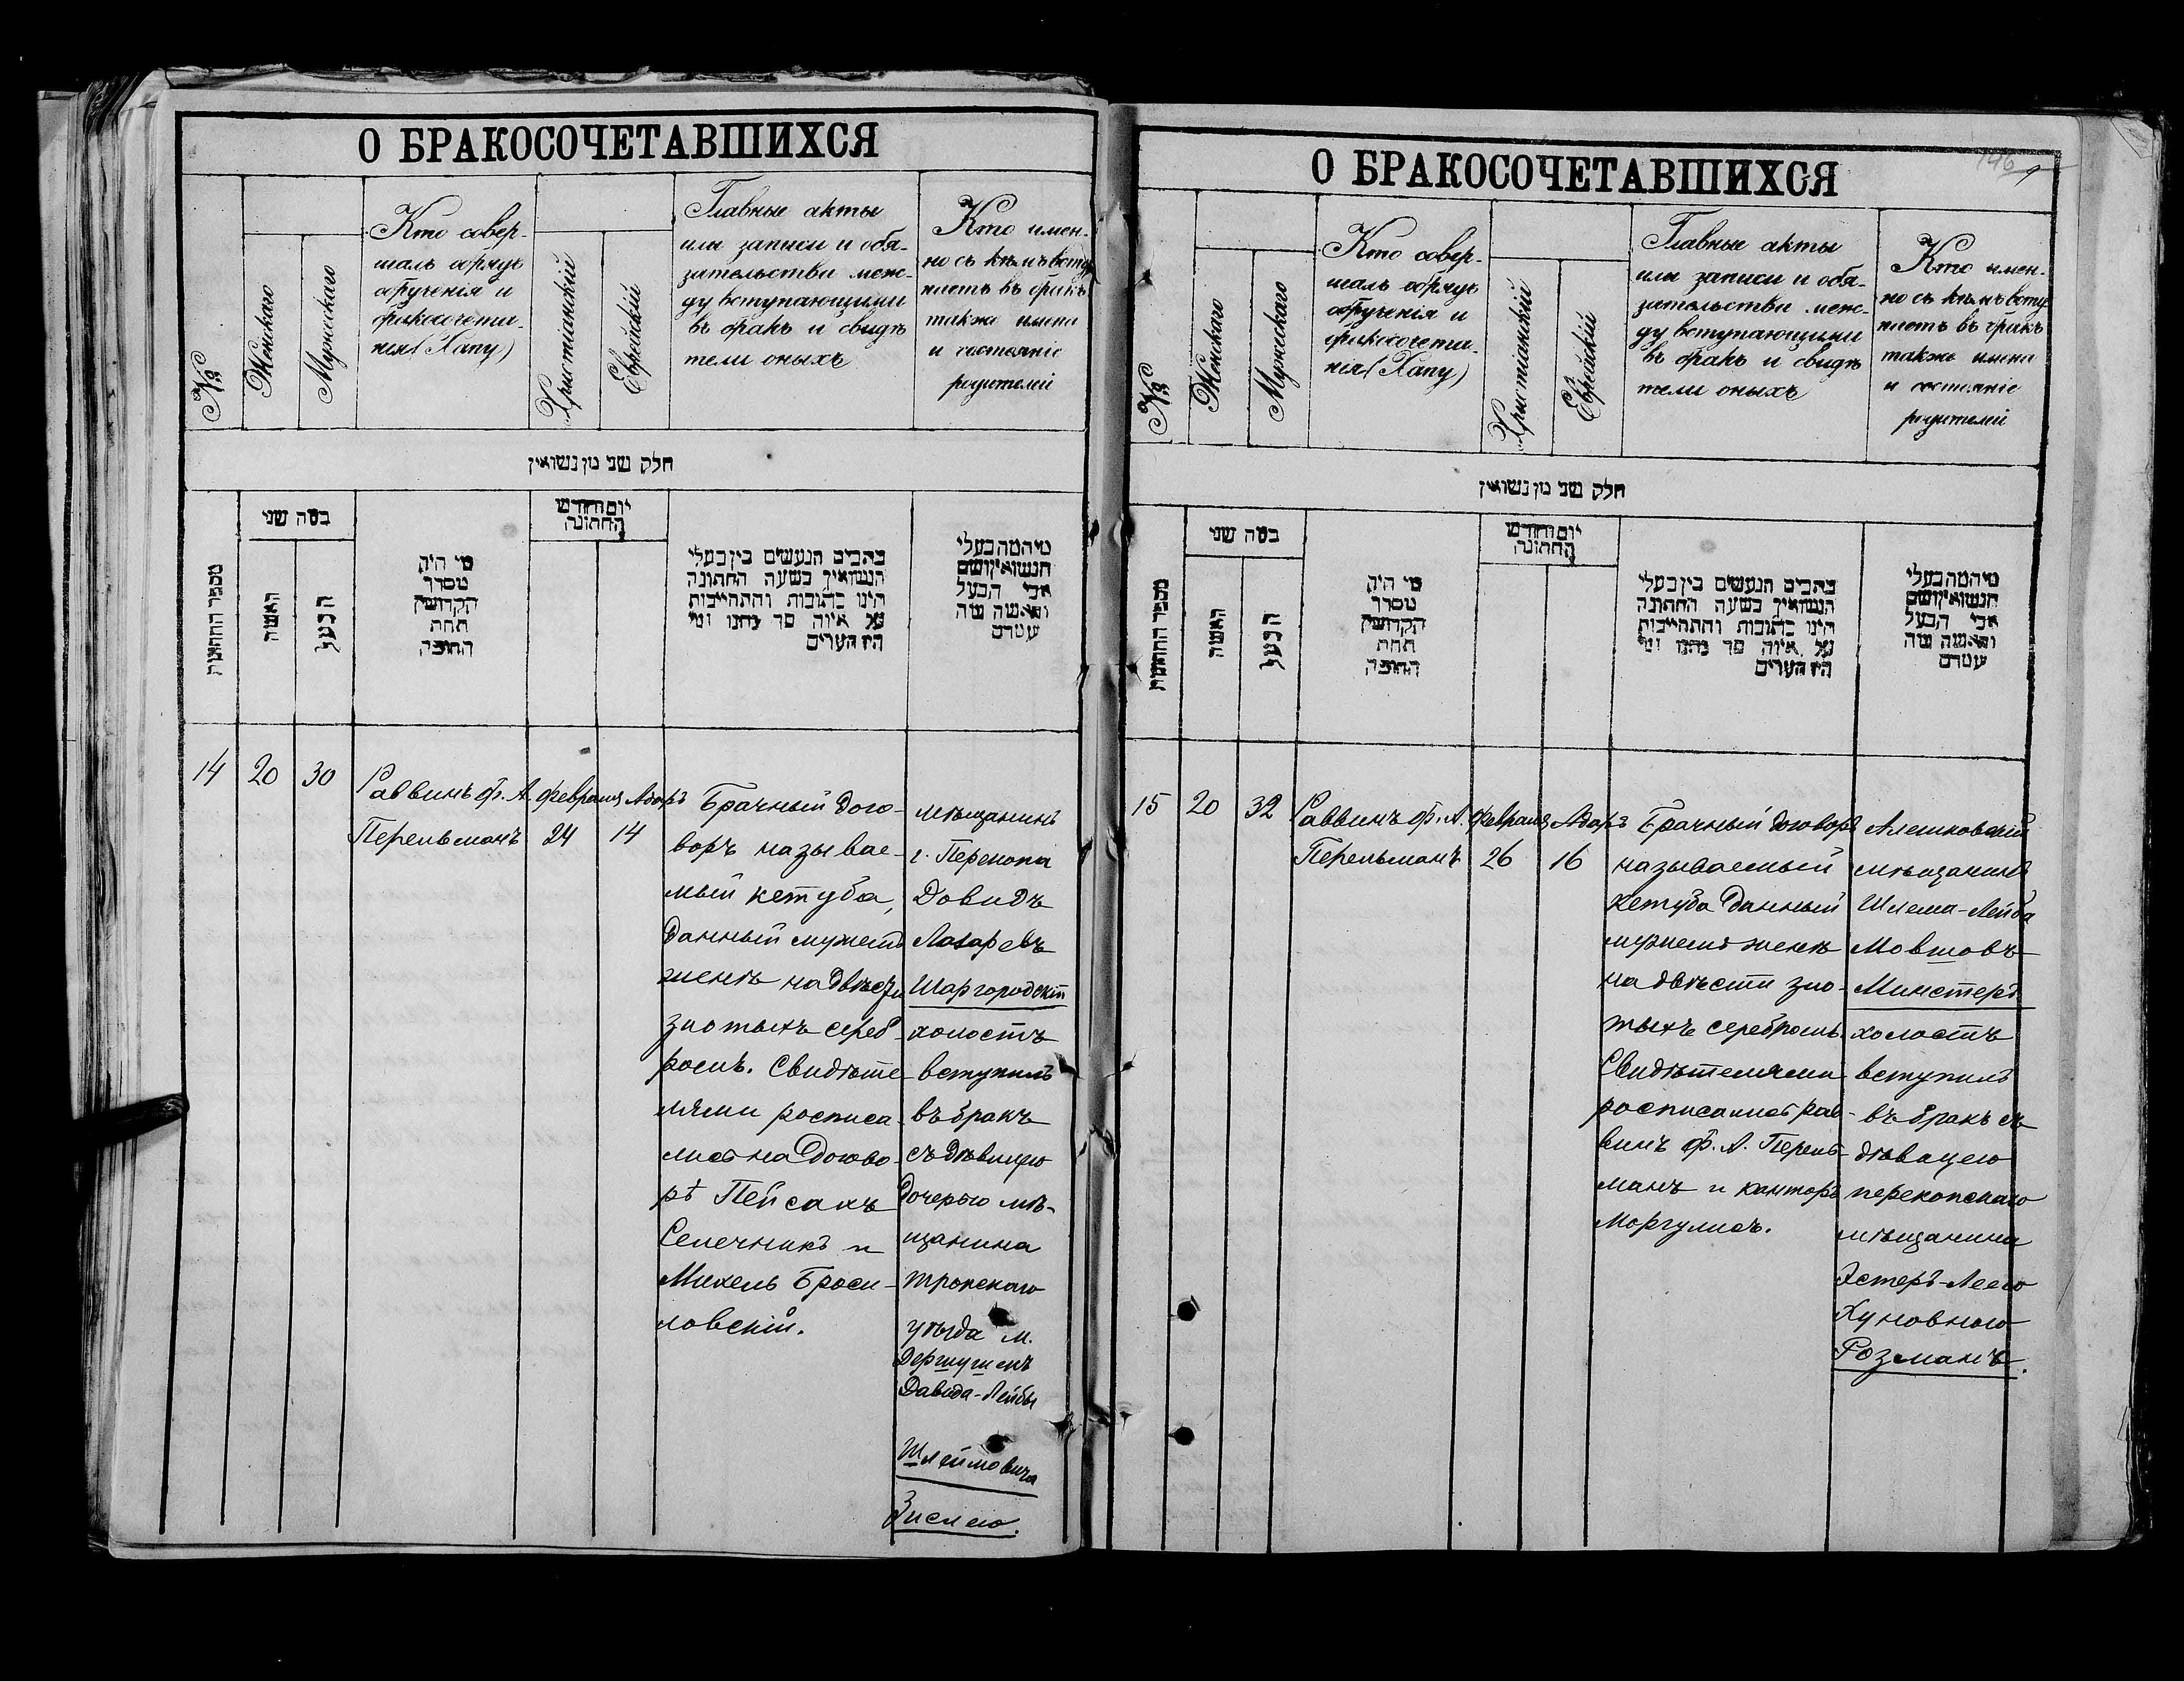 О БРАКОСОЧЕТАВШИХСЯ
№
Женскаго
Мужескаго
Кто совер-
шалъ обрядъ
обрученія и
бракосочета-
нія (Хапу)
Христіанскій
Еврейскій
Главные акты
или записи и обя-
зательства меж-
ду вступающими
въ бракъ и свидѣ
тели оныхъ
Кто имен-
но съ кѣмъ вступ
аетъ въ бракъ
также имена
и состояніе
родителей
חלק שני מן נשואין
מספר החתונות
כמה שני
האשה
הבעל
מי היה
מסדר
הקדושין
תחת
החופה
יום וחודש
החתונה
כתבים הנעשים בין בעלי
הנשואין בשעה החתונה
היינו כתובות והתחייבות
על איזה סך נתנו ומי
היו העדים
מיהמה בעלי
הנשואין ושם
אבי הבעל
והאשה ומה
14
20
30
Раввинъ Ф. А.
Перельманъ
Февраля
24
Адаръ
14
Брачный дого-
воръ называе-
мый кетуба,
данный мужемъ
женѣ на двѣсти
злотыхъ сереб-
ромъ. Свидѣте-
лями росписа-
лись на догово-
рѣ Пейсахъ
Селечникъ и
Михель Броси-
ловскій.
мѣщанинъ
г. Перекопа
Довидъ
Лазаревъ
Шаргородскій
холостъ
вступилъ
въ бракъ
съ дѣвицею
дочерью мѣ-
щанина
трокскаго
уѣзда м.
Давида-Лейбы
Шлеймовича
Зислею.
О БРАКОСОЧЕТАВШИХСЯ
146
№
Женскаго
Мужескаго
Кто совер-
шалъ обрядъ
обрученія и
бракосочета-
нія (Хапу)
Христіанскій
Еврейскій
Главные акты
или записи и обя-
зательства меж-
ду вступающими
въ бракъ и свидѣ
тели оныхъ
Кто имен-
но съ кѣмъ вступ
аетъ въ бракъ
также имена
и состояніе
родителей
חלק שני מן נשואין
מספר החתונות
כמה שני
האשה
הבעל
מי היה
מסדר
הקדושין
תחת
החופה
יום וחודש
החתונה
כתבים הנעשים בין בעלי
הנשואין בשעה החתונה
היינו כתובות והתחייבות
על איזה סך נתנו ומי
היו העדים
מיהמה בעלי
הנשואין ושם
אבי הבעל
והאשה ומה
15
20
32
Раввинъ Ф. А.
Перельманъ
Февраля
26
Адаръ
16
Брачный договоръ
называемый
кетуба данный
мужемъ женѣ
на двѣсти зло-
тыхъ серебромъ.
Свидѣтелями
росписались рав-
винъ Ф. А. Перель-
манъ и канторъ
Моргулисъ.
Алешковскій
мѣщанинъ
Шлема-Лейба
Мовшовъ
Минстеръ
холостъ
вступилъ
въ бракъ съ
дѣвицею
перекопскаго
мѣщанина
Эстеръ-Леею
Хуновною
Розманъ.